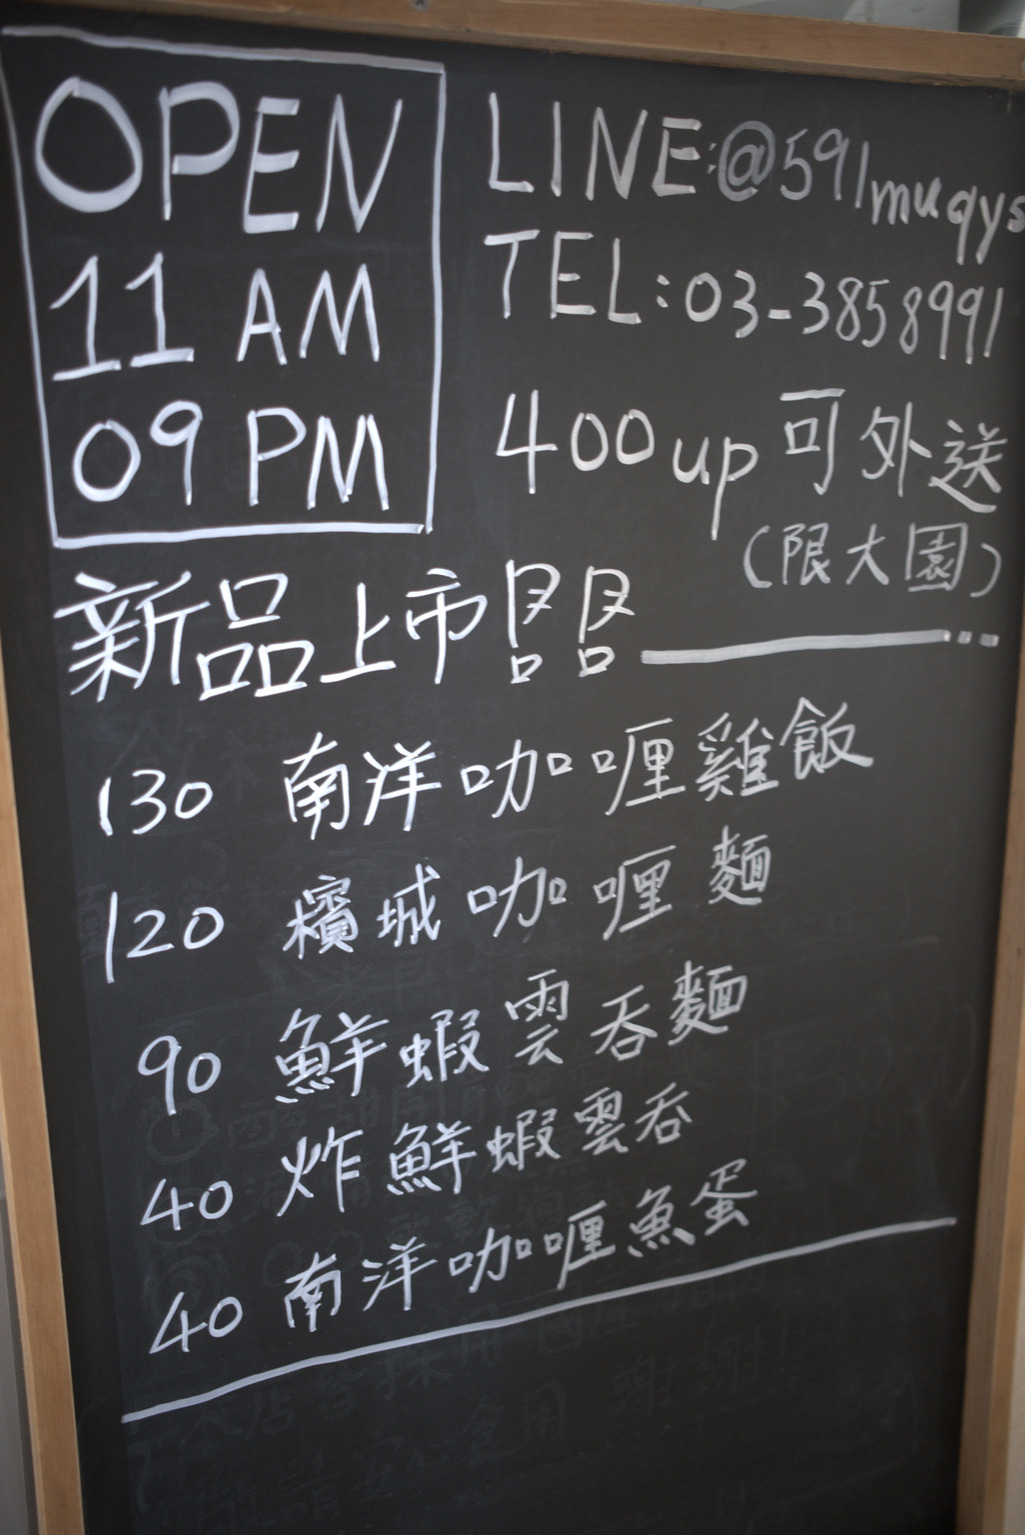 OPEN
11 AM
09 PM
LINE:@591muqys
TEL:03-3858991
400up 可外送
(限大園)
新品上市
130 南洋咖喱雞飯
120 檳城咖喱麵
90 鮮蝦雲吞麵
40 炸鮮蝦雲吞
40 南洋咖喱魚蛋